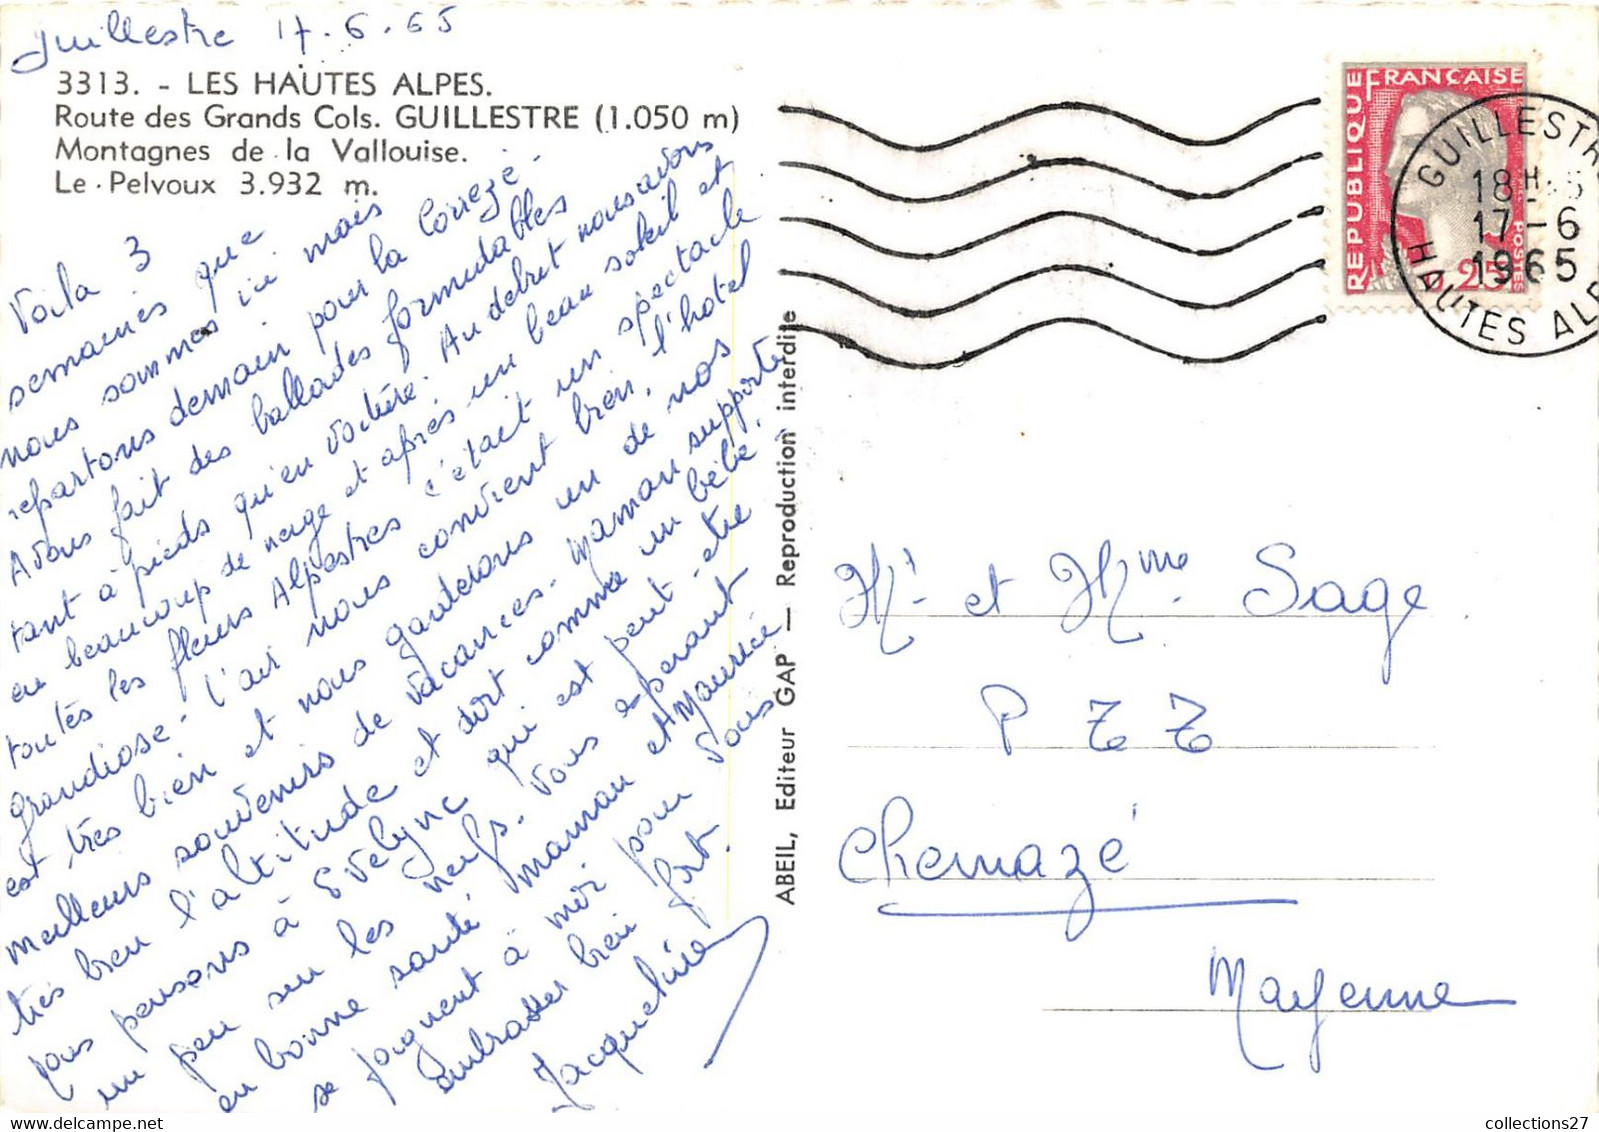 Guillestre 17.6.65
3313. - LES HAUTES ALPES.
Route des Grands Cols. GUILLESTRE (1.050 m)
Montagnes de la Vallouise.
Le Pelvoux 3.932 m.
Voila 3
semaines que
nous sommes ici mais
repartons demain pour la Corrèze.
Avons fait des ballades formidables
tant à pieds qu'en voiture. Au debut nous avons
eu beaucoup de neige et après un beau soleil et
toutes les fleurs Alpestres c'était un spectacle
grandiose. L'air nous convient bien, l'hotel
est très bien et nous garderons un de nos
meilleurs souvenirs de vacances. Maman supporte
très bien l'altitude et dort comme un bébé.
pensons à Evelyne qui est peut-être
un peu sur les nerfs. Vous esperant
en bonne santé maman et Maurice
se joignent à moi pour vous
embrasser bien fort.
Jacqueline
ABEIL, Editeur GAP — Reproduction interdite
REPUBLIQUE FRANÇAISE
POSTES
0,25
GUILLESTRE
18H.
17-6
1965
HAUTES ALP
Mr et Mme Sage
P T T
Chemazé
Mayenne
collections27